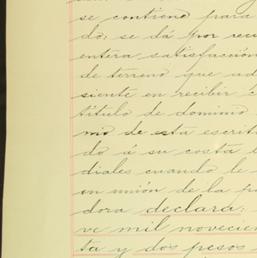 se contiene para
do; se dá por
entera satisfacción
de terreno que ad
siente en recibir
título de dominio
mo de esta escrit
do á su costa
diales cuando le
en unión de la
dora declara:
ve mil novecien
ta y dos pesos